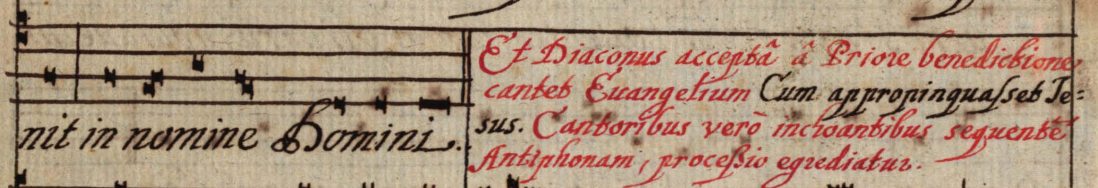 nit in nomine Domini.
Et Diaconus acceptâ â Priore benedictione
cantet Euangelium Cum appropinquaſset Ie=
sus. Cantoribus verò inchoantibus sequentē
Antiphonam, proceſsio egrediatur.